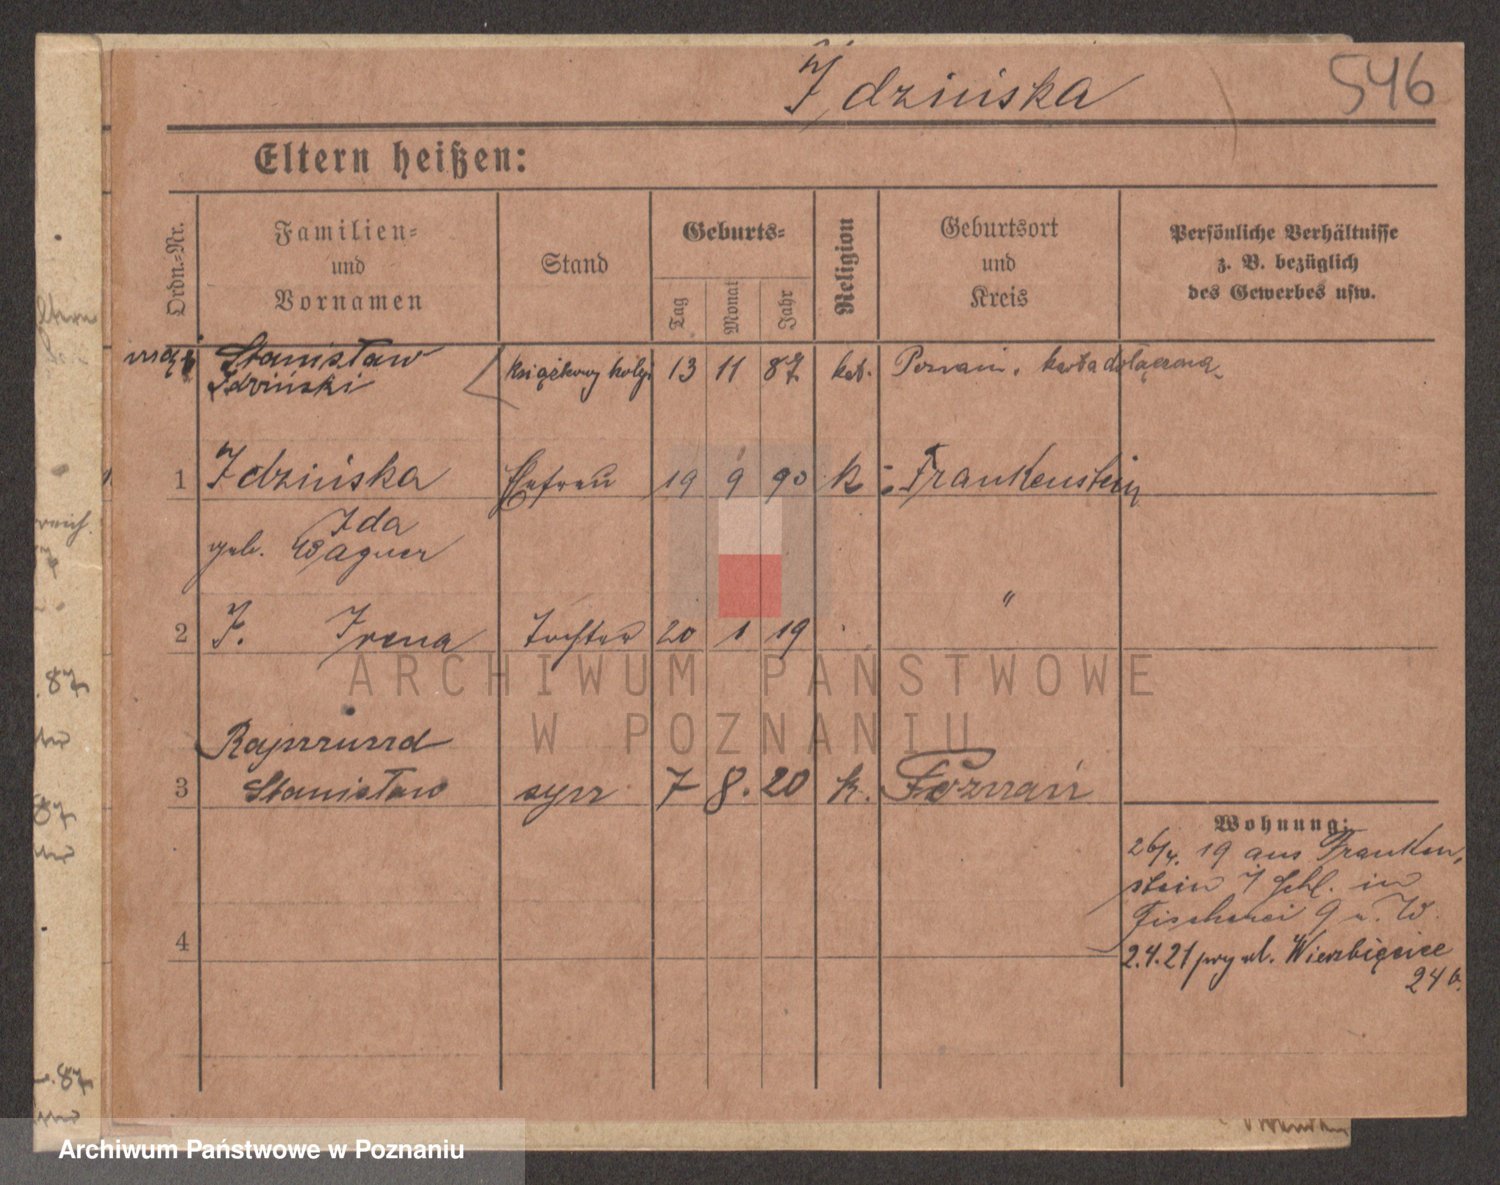 Idzińska
546
Eltern heißen:
Ordn.-Nr.
Familien-
und
Vornamen
Stand
Geburts-
Tag
Monat
Jahr
Religion
Geburtsort
und
Kreis
Persönliche Verhältnisse
z. B. bezüglich
des Gewerbes usw.
mąż Stanisław książkowy kolej. 13 11 87 kat. Poznań. karta dołączona
Idziński
1 Idzińska Ehefrau 19 9 90 k Frankenstein
Ida
geb. Wagner
2 I. Irena Tochter 20 1 19 "
Rajmund
3 Stanisław syn 7 8. 20 k. Poznań
Wohnung:
26/4. 19 aus Franken-
stein i Schl. in
Fischerei 9 u. W.
4
2.4.21 przy ul. Wierzbięcice
24 b.
. 87
87
. 87
ARCHIWUM PAŃSTWOWE
W POZNANIU
Archiwum Państwowe w Poznaniu